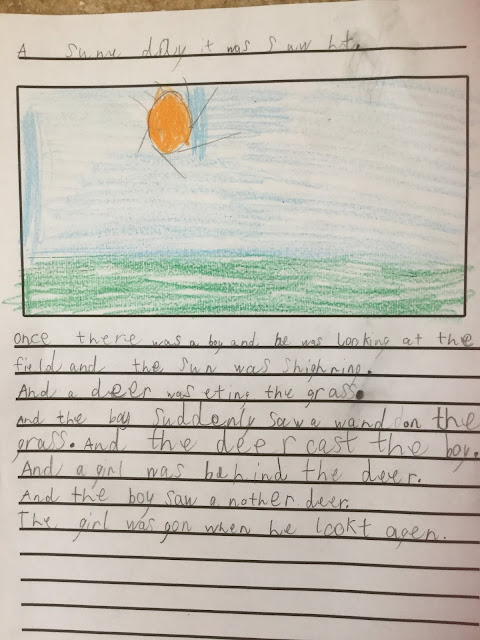 A sune day it was s aw ht.
once there was a boy and he was looking at the
field and the sun was shighning.
And a deer was eting the grass.
And the boy suddenly saw a wand on the
grass. And the deer cast the boy.
And a girl was behind the deer.
And the boy saw a nother deer.
The girl was gon when he lookt agen.